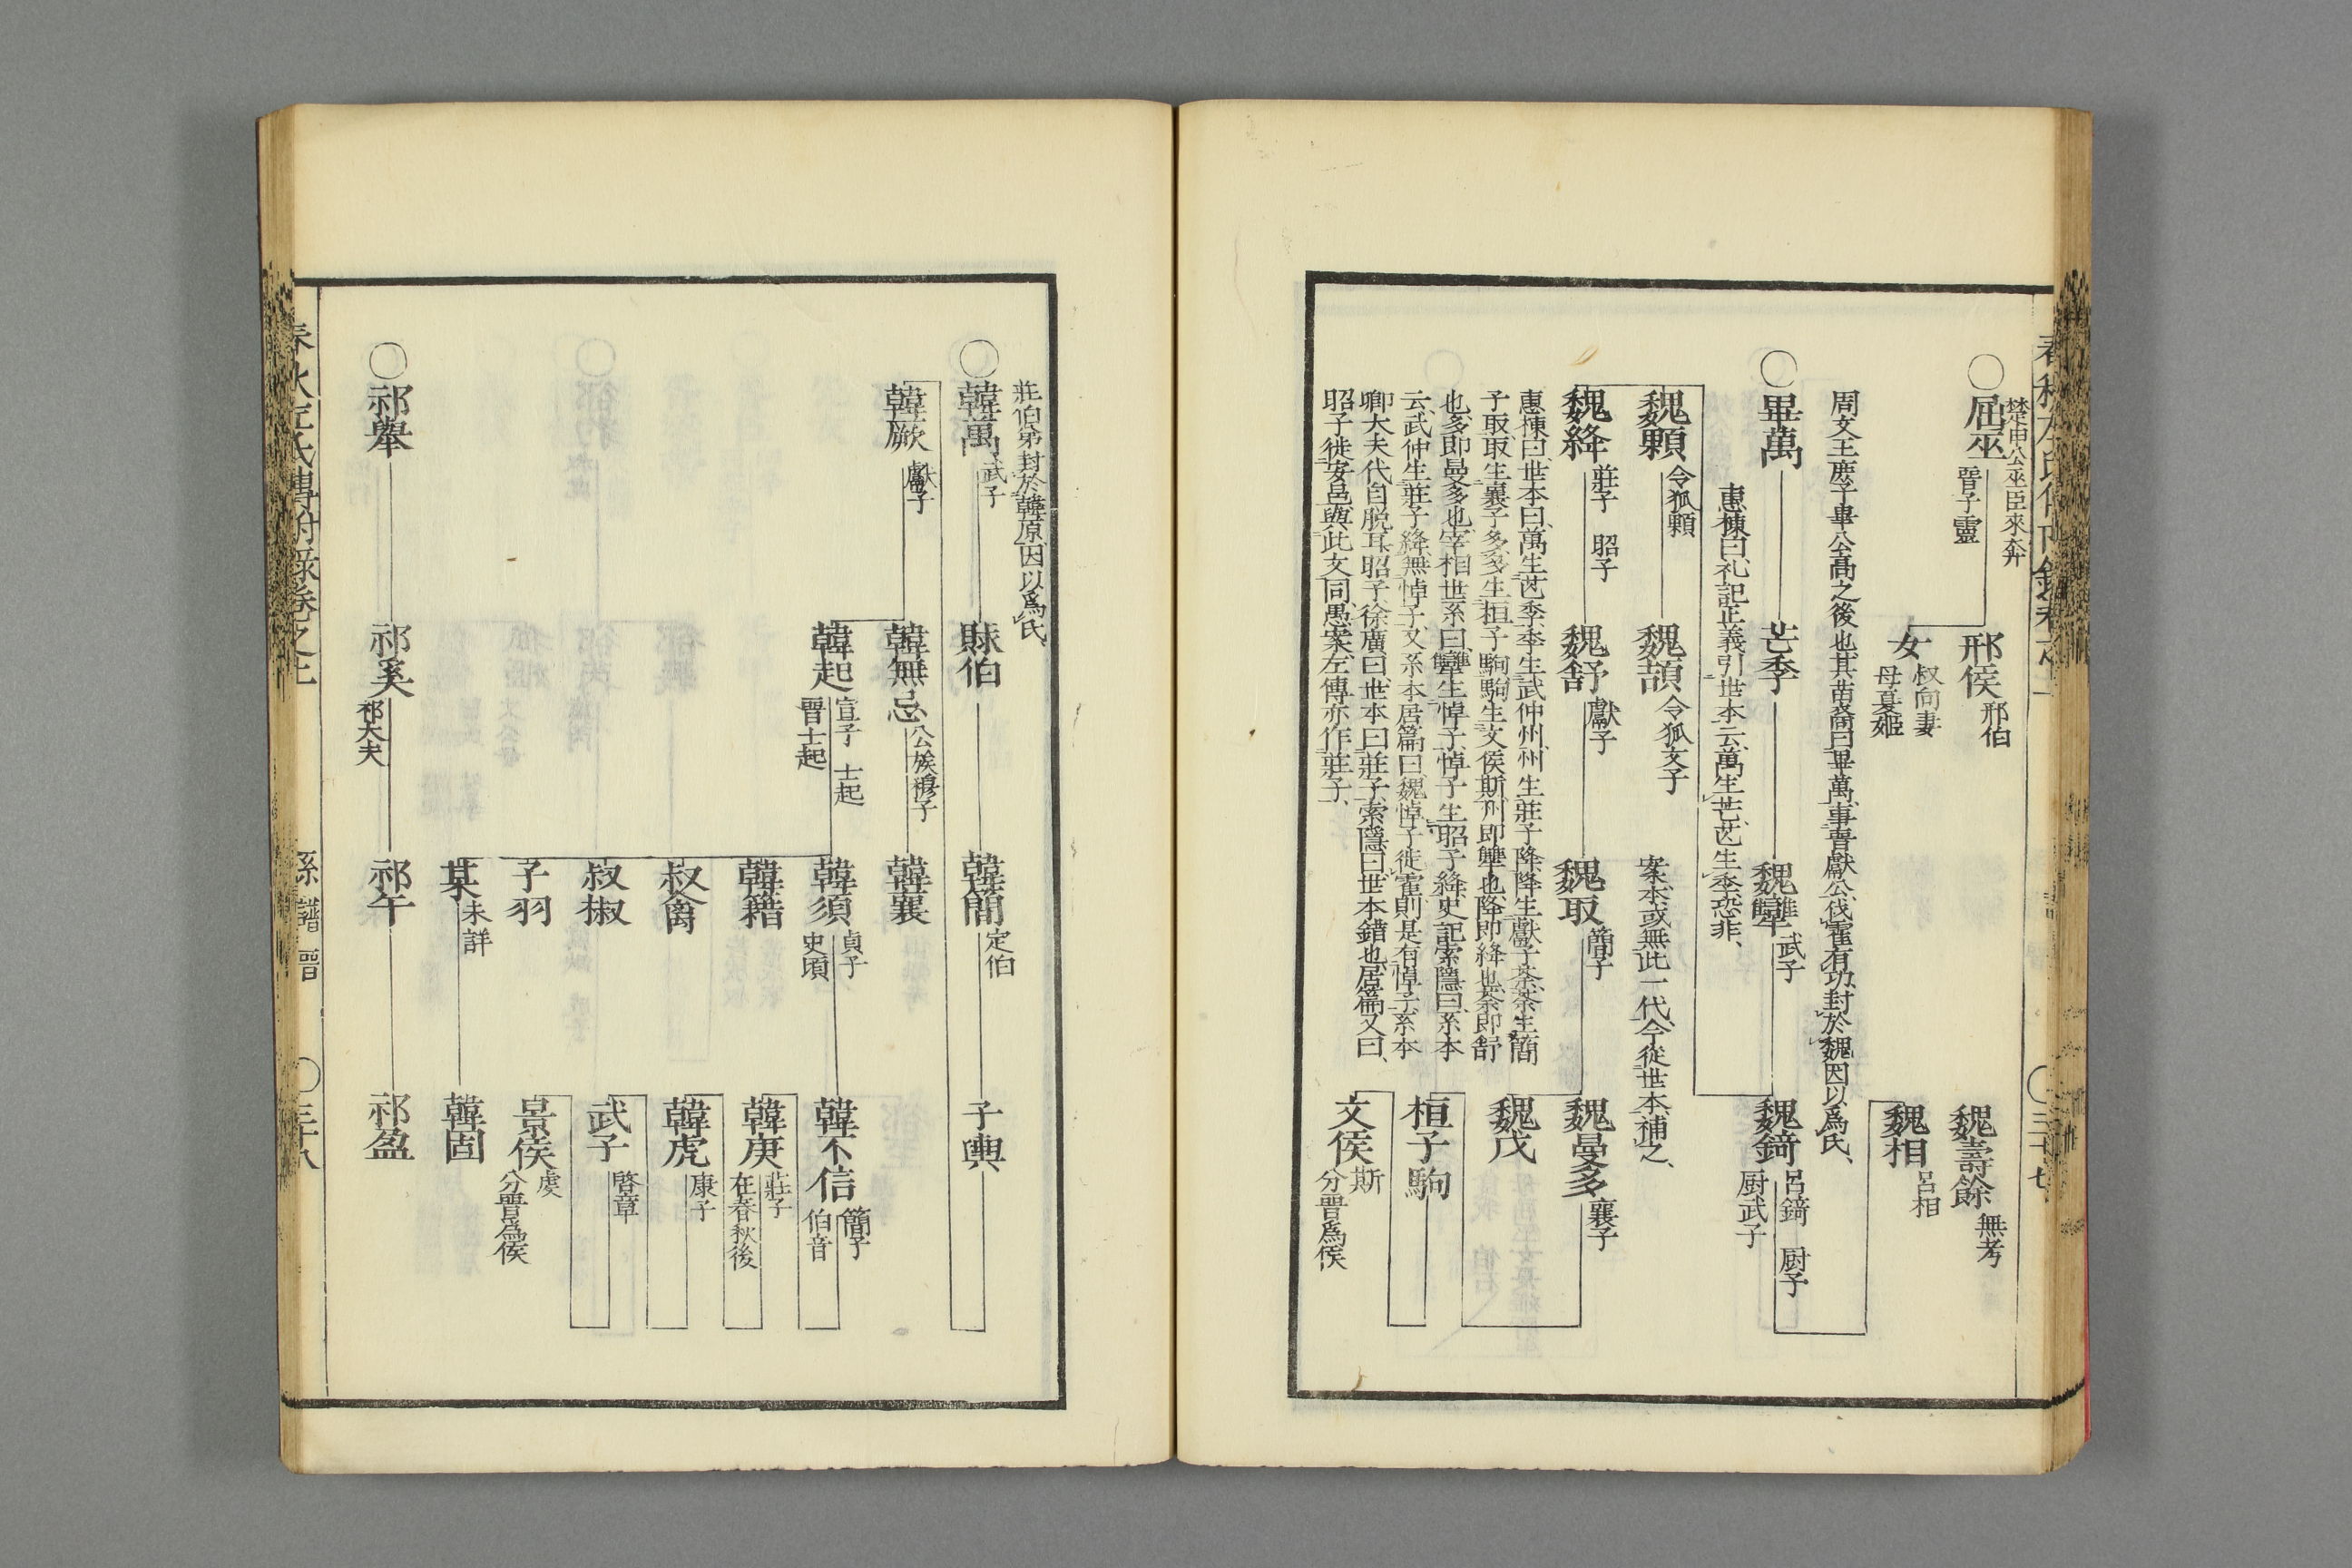 春秋左氏傳附錄卷之上
〇三十七
楚申公巫臣來奔
〇屈巫
晉子靈
邢侯
邢伯
女
叔向妻
母夏姬
魏壽餘
無考
魏相
呂相
周文王庶子畢公高之後也其苗裔曰畢萬事晉獻公伐霍有功封於魏因以爲氏
〇畢萬
芒季
魏犨
武子
魏錡
呂錡 厨子
厨武子
惠棟曰礼記正義引世本云萬生芒芒生季恐非
魏顆
令狐顆
魏頡
令狐文子
案本或無此一代今從世本補之
魏絳
莊子 昭子
魏舒
獻子
魏取
簡子
魏曼多
襄子
魏戊
惠棟曰世本曰萬生芒季季生武仲州州生莊子降降生獻子荼荼生簡
子取取生襄子多多生桓子駒駒生文侯斯州即犨也降即絳也荼即舒
也多即曼多也宰相世系曰犨生悼子悼子生昭子絳史記索隱曰系本
云武仲生莊子絳無悼子又系本居篇曰魏悼子徙霍則是有悼子系本
卿大夫代自脱耳昭子徐廣曰世本曰莊子索隱曰世本錯也居篇又曰
昭子徙安邑與此文同愚案左傳亦作莊子
桓子駒
文侯
斯
分晉爲侯
莊伯弟封於韓原因以爲氏
〇韓萬
武子
賕伯
韓簡
定伯
子輿
韓厥
獻子
韓無忌
公族穆子
韓襄
韓起
宣子 士起
晉士起
韓須
貞子
史頃
韓不信
簡子
伯音
韓籍
韓庚
莊子
在春秋後
叔禽
韓虎
康子
叔椒
武子
啓章
子羽
景侯
虔
分晉爲侯
某
未詳
韓固
〇祁舉
祁奚
祁大夫
祁午
祁盈
春秋左氏傳附録卷之上
系譜晉
〇三十八